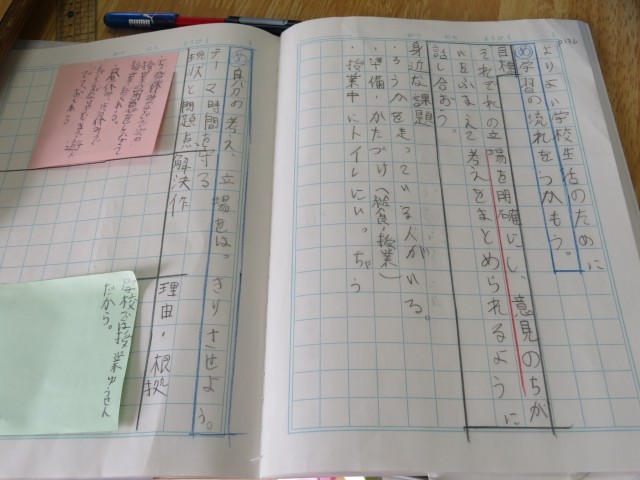 P136
よりよい学校生活のために
め学習の流れをつかもう。
目標
それぞれの立場を明確にし、意見のちが
いをふまえて考えをまとめられるように
話し合おう。
身近な課題
・ろうかを走っている人がいる。
・準備・かたづけ(給食・授業)
・授業中にトイレにい。ちゃう
め自分の考え、立場をは。きりさせよう。
テーマ時間を守る
現状と問題点
解決作
理由・根拠
学校では授業ゆうせん
だから。
PUMA